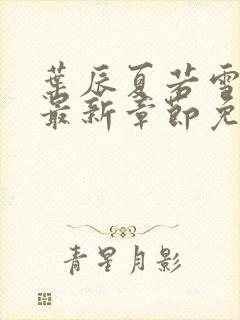 叶辰夏若雪
最新章节免
青星月影